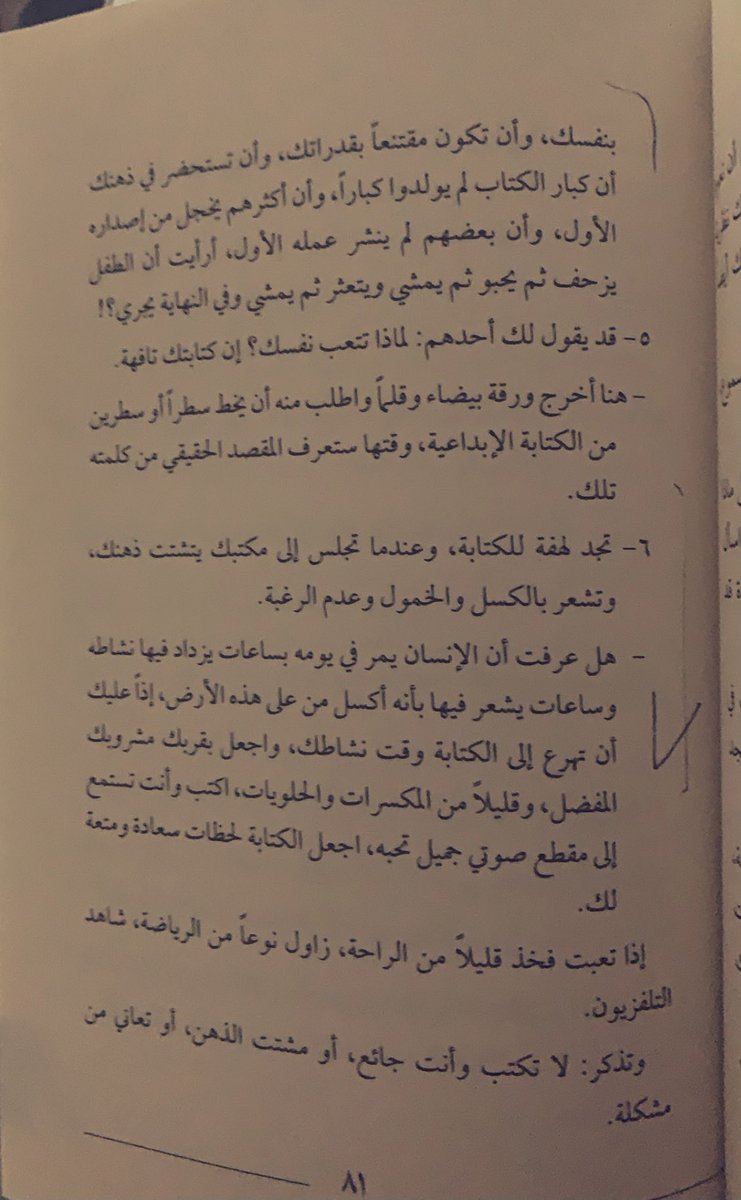 بنفسك، وأن تكون مقتنعاً بقدراتك، وأن تستحضر في ذهنك
أن كبار الكتاب لم يولدوا كباراً، وأن أكثرهم يخجل من إصداره
الأول، وأن بعضهم لم ينشر عمله الأول، أرأيت أن الطفل
يزحف ثم يحبو ثم يمشي ويتعثر ثم يمشي وفي النهاية يجري؟!
٥- قد يقول لك أحدهم: لماذا تتعب نفسك؟ إن كتابتك تافهة.
- هنا أخرج ورقة بيضاء وقلماً واطلب منه أن يخط سطراً أو سطرين
من الكتابة الإبداعية، وقتها ستعرف المقصد الحقيقي من كلمته
تلك.
٦- تجد لهفة للكتابة، وعندما تجلس إلى مكتبك يتشتت ذهنك،
وتشعر بالكسل والخمول وعدم الرغبة.
- هل عرفت أن الإنسان يمر في يومه بساعات يزداد فيها نشاطه
وساعات يشعر فيها بأنه أكسل من على هذه الأرض، إذاً عليك
أن تهرع إلى الكتابة وقت نشاطك، واجعل بقربك مشروبك
المفضل، وقليلاً من المكسرات والحلويات، اكتب وأنت تستمع
إلى مقطع صوتي جميل تحبه، اجعل الكتابة لحظات سعادة ومتعة
لك.
إذا تعبت فخذ قليلاً من الراحة، زاول نوعاً من الرياضة، شاهد
التلفزيون.
وتذكر: لا تكتب وأنت جائع، أو مشتت الذهن، أو تعاني من
مشكلة.
٨١